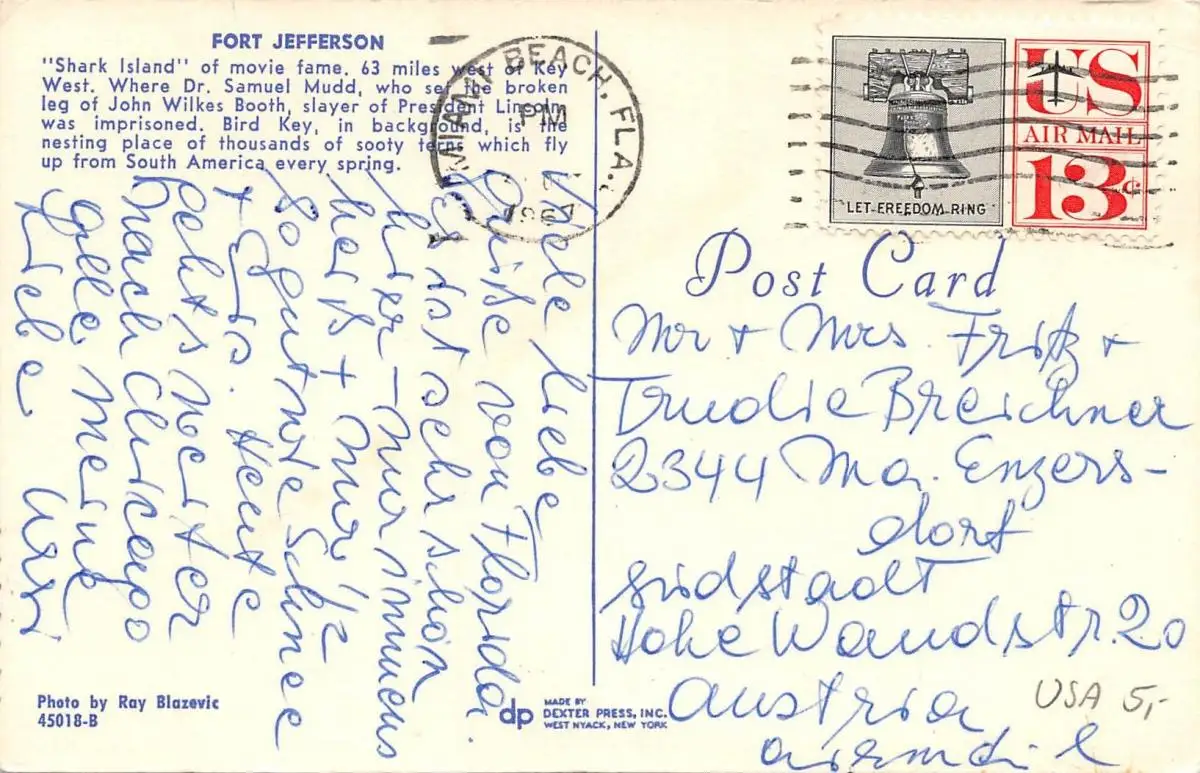 FORT JEFFERSON
"Shark Island" of movie fame. 63 miles west of Key
West. Where Dr. Samuel Mudd, who set the broken
leg of John Wilkes Booth, slayer of President Lincoln,
was imprisoned. Bird Key, in background, is the
nesting place of thousands of sooty terns which fly
up from South America every spring.
MIAMI BEACH, FLA.
PM
LET FREEDOM RING
US
AIR MAIL
13c
Post Card
Viele liebe
Grüße von Florida.
Es ist sehr schön
hier - nur immens
heiß + nur
so gut wie Schnee
+ Eis. Heute
geht's weiter
nach Chicago
alle meine
Liebe Ursi
Mr + Mrs. Fritz +
Trudie Breichner
2344 Ma. Enzers-
dorf
Südstadt
Hohe Wandstr. 20
Austria
airmail
USA 5,-
Photo by Ray Blazevic
45018-B
dp
MADE BY
DEXTER PRESS, INC.
WEST NYACK, NEW YORK